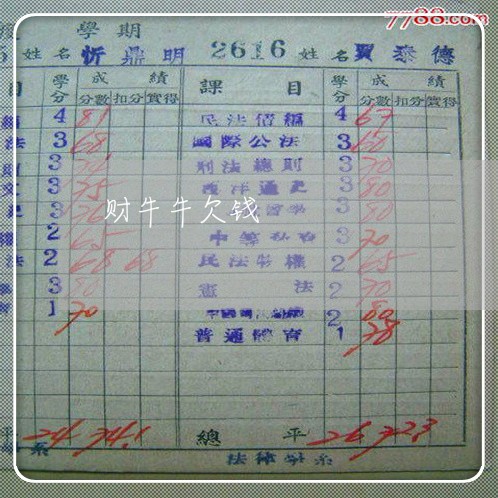 7788.com
學期
姓名 忻鼎明 2616 姓名 賈泰德
目 學分 成績 課目 學分 成績
分數 扣分 實得 分數 扣分 實得
4 81 民法債編 4 67
法 3 68 國際公法 3 60
3 刑法總則 3 70
3 75 西洋通史 3 80
3 3 80
權 2 65 3 70
法 2 68 68 民法物權 2 65
3 80 憲法 2 70
1 70 2 80
普通體育 1 78
平 24 74.1 總平 26 72.3
系 法律學系
财牛牛欠钱